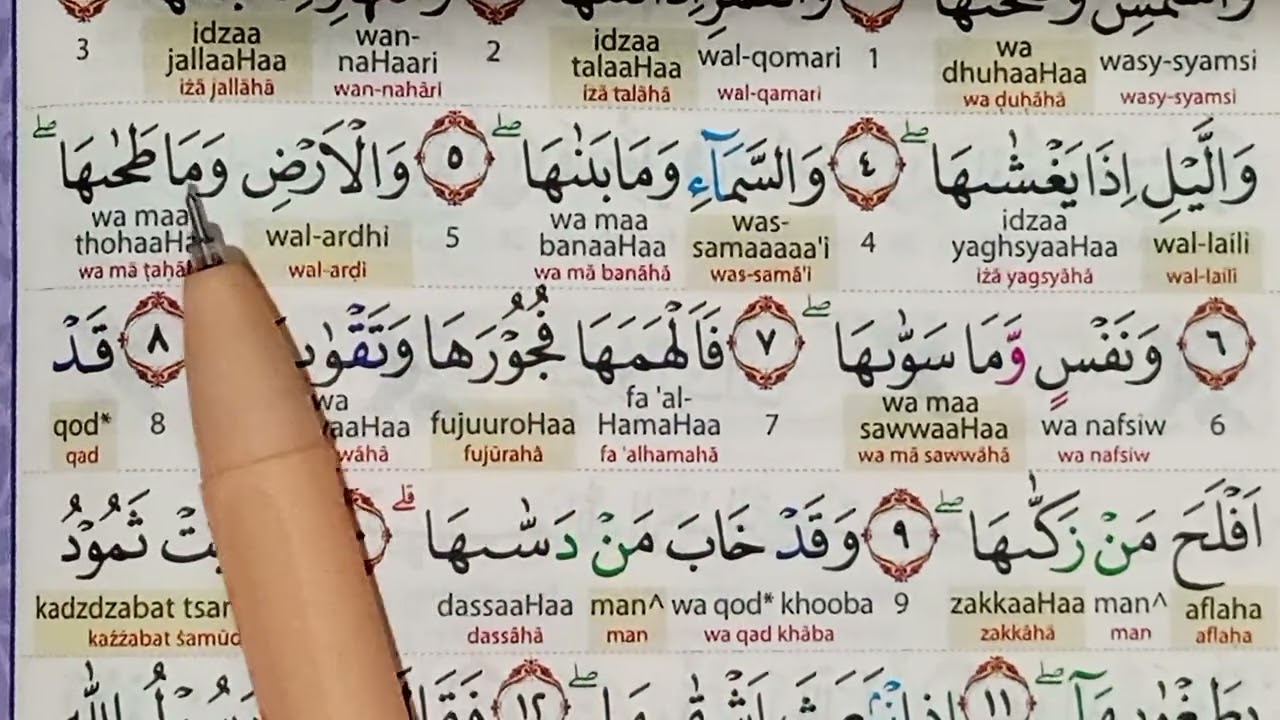 wasy-syamsi wa dhuhaaHaa 1 wal-qomari idzaa talaaHaa 2 wan-naHaari idzaa jallaaHaa 3
wasy-syamsi wa ḍuḥāhā wal-qamari iżā talāhā wan-nahāri iżā jallāhā
وَالَّيْلِ اِذَا يَغْشٰىهَاۖ ٤ وَالسَّمَاۤءِ وَمَا بَنٰىهَاۖ ٥ وَالْاَرْضِ وَمَا طَحٰىهَاۖ
wal-laili idzaa yaghsyaaHaa 4 was-samaaaaa'i wa maa banaaHaa 5 wal-ardhi wa maa
wal-laili iżā yagsyāhā was-samā'i wa mā banāhā wal-arḍi wa mā
٦ وَنَفْسٍ وَّمَا سَوّٰىهَاۖ ٧ فَاَلْهَمَهَا فُجُوْرَهَا ٨ قَدْ
6 wa nafsiw wa maa sawwaaHaa 7 fa 'al-HamaHaa fujuuroHaa wa 8 qod*
wa nafsiw wa mā sawwāhā fa 'alhamahā fujūrahā qad
اَفْلَحَ مَنْ زَكّٰىهَاۖ ٩ وَقَدْ خَابَ مَنْ دَسّٰىهَاۗ ثَمُوْدُ
aflaha man^ zakkaaHaa 9 wa qod* khooba man^ dassaaHaa kadzdzabat
aflaha man zakkāhā wa qad khāba man dassāhā każżabat
١١ ١٢